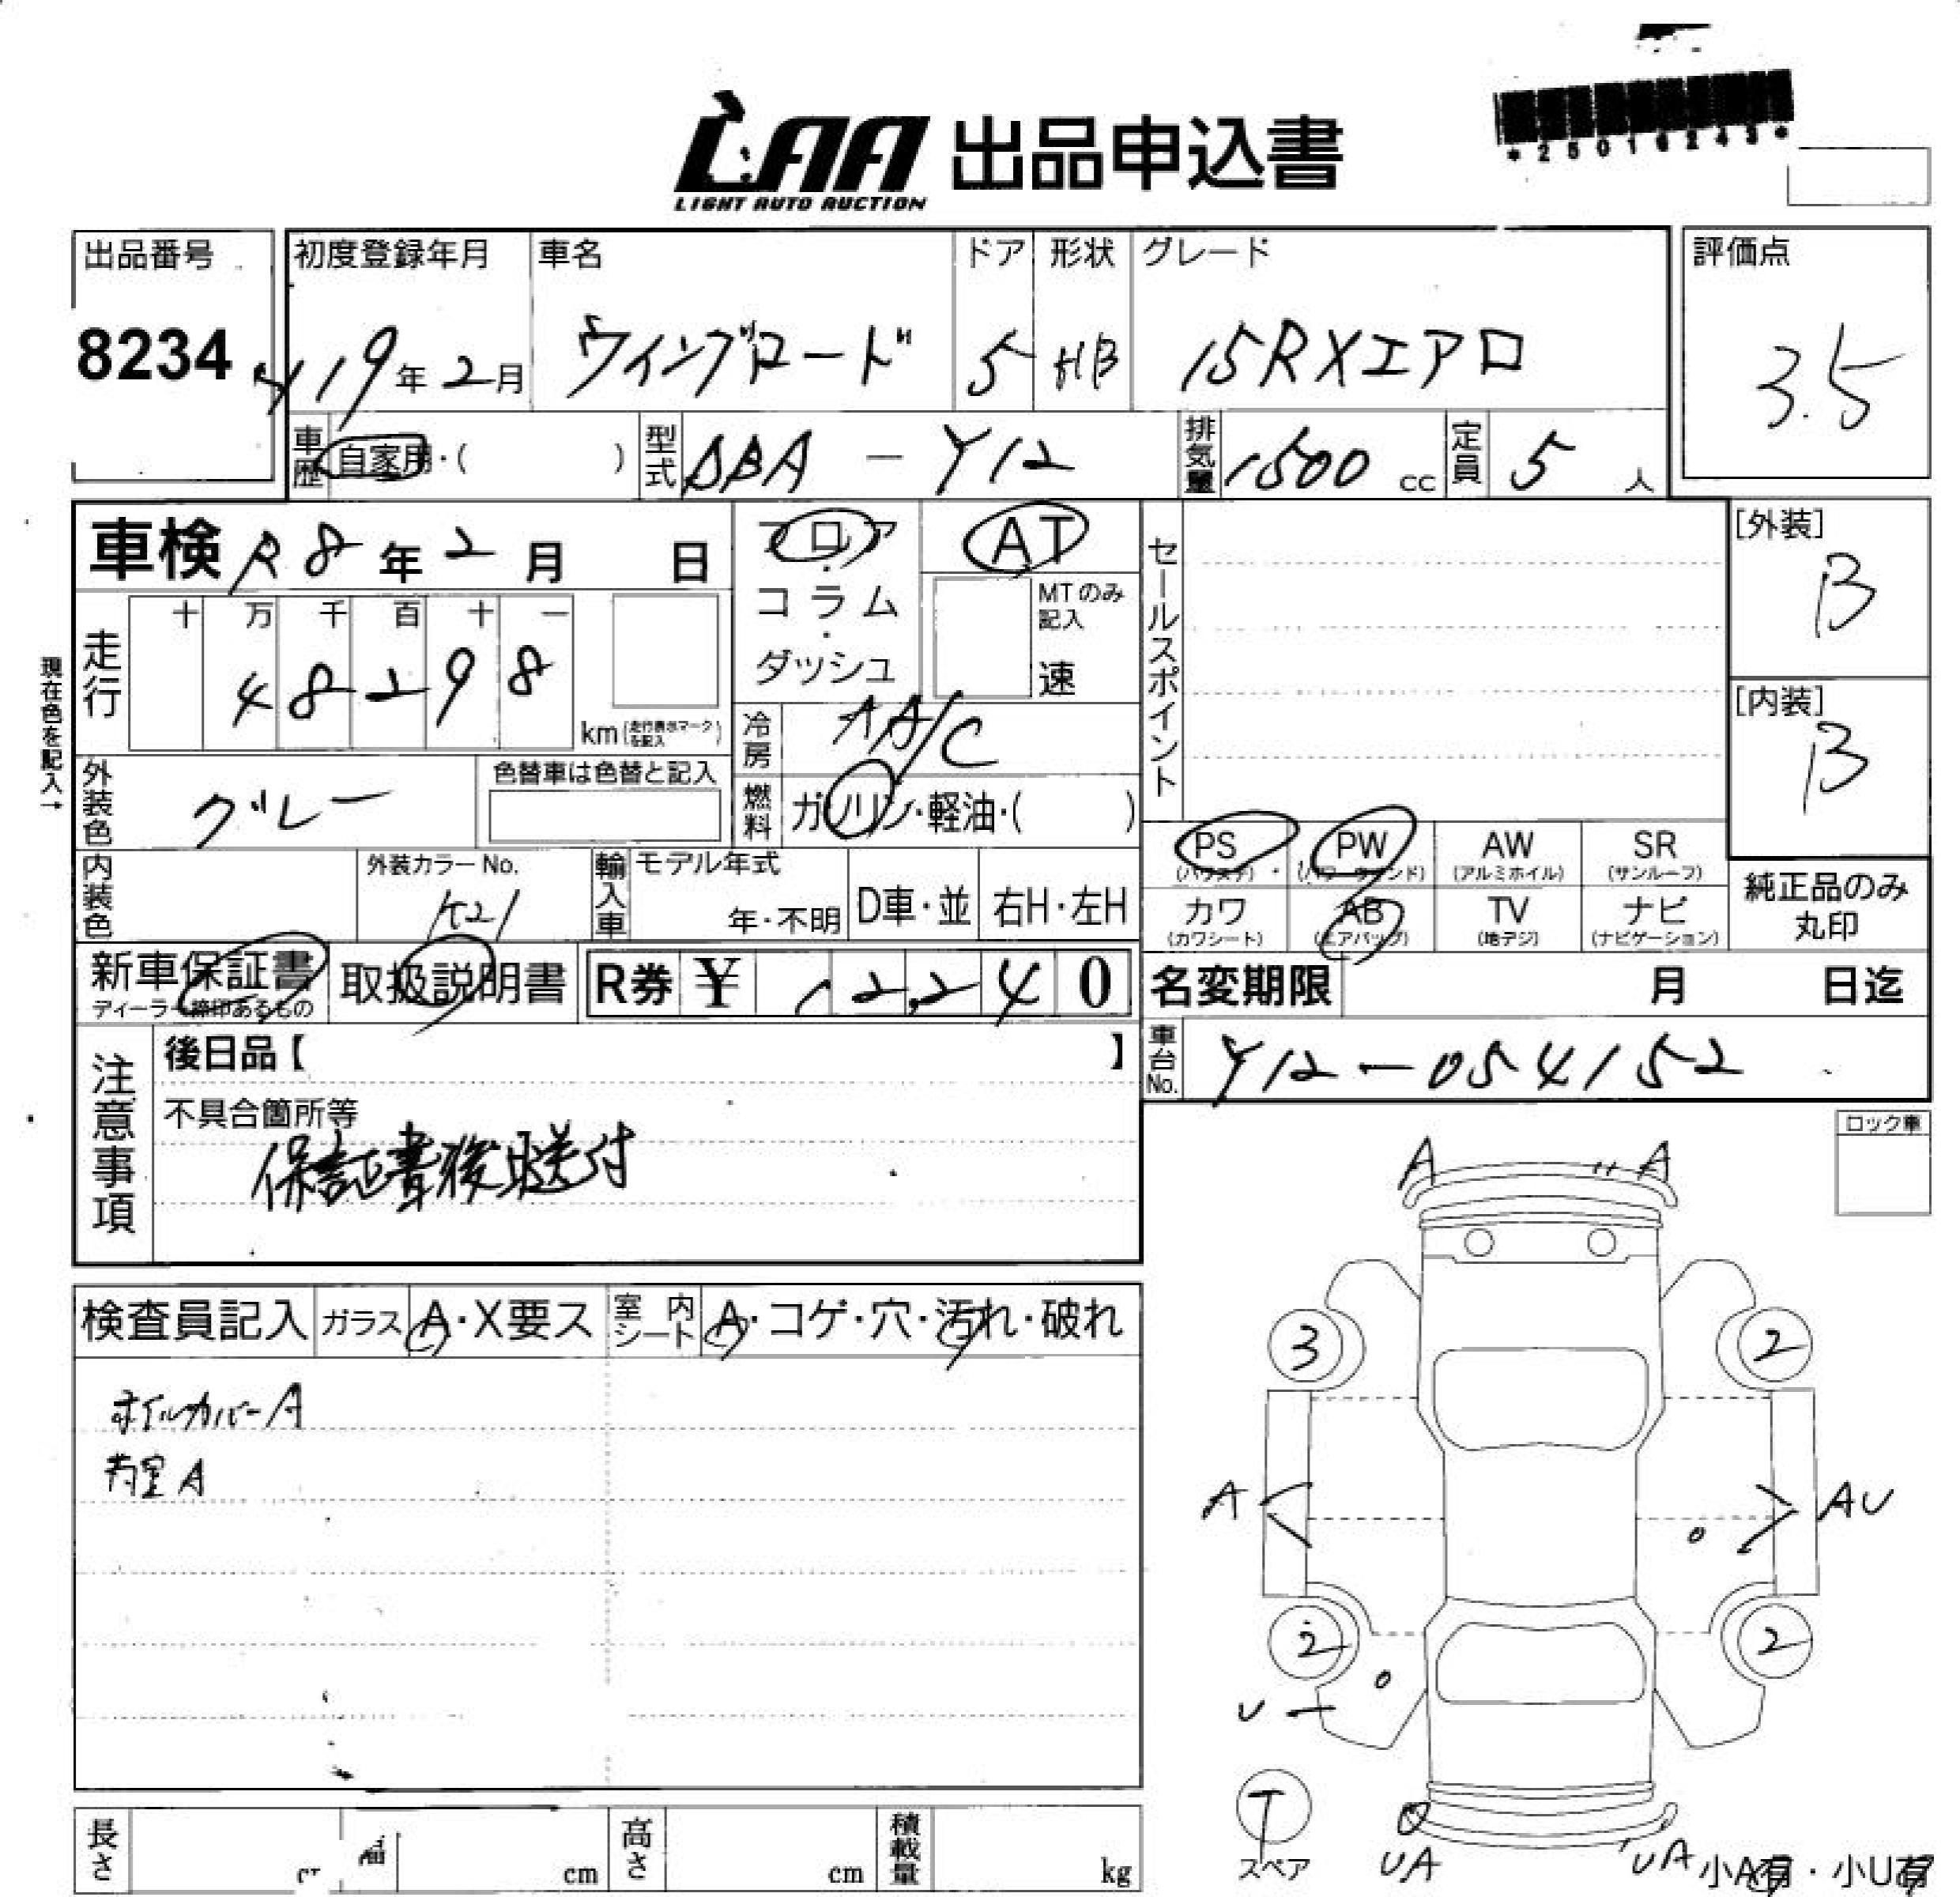 LAA 出品申込書
LIGHT AUTO AUCTION
*25016243*
出品番号 初度登録年月 車名 ドア 形状 グレード 評価点
8234 H19年2月 ウイングロード 5 HB 15RXエアロ 3.5
車歴 自家用・( ) 型式 DBA-Y12 排気量 1500 cc 定員 5 人
車検 R8年2月 日 フロア・コラム・ダッシュ AT
MTのみ記入 速
セールスポイント
[外装] B
[内装] B
走行 十 万 千 百 十 一
48298 km (走行表示マークを記入)
現在色を記入→
冷房 AA/C
外装色 グレー 色替車は色替と記入
燃料 ガソリン・軽油・( )
内装色 外装カラーNo. K21 輸入車 モデル年式 年・不明 D車・並 右H・左H
PS (パワステ) PW (パワーウィンド) AW (アルミホイル) SR (サンルーフ)
カワ (カワシート) AB (エアバッグ) TV (地デジ) ナビ (ナビゲーション)
純正品のみ丸印
新車保証書 ディーラー締印あるもの 取扱説明書 R券 ¥ 12,240
名変期限 月 日迄
車台No. Y12-054152
注意事項
後日品【 】
不具合箇所等
保証書後日送付
ロック車
検査員記入 ガラス A・X要ス 室内シート A・コゲ・穴・汚れ・破れ
ホイルカバーA
内室A
A A
3 2
A AU
2 2
U
T
スペア
UA UA 小A有・小U有
長さ cm 幅 cm 高さ cm 積載量 kg